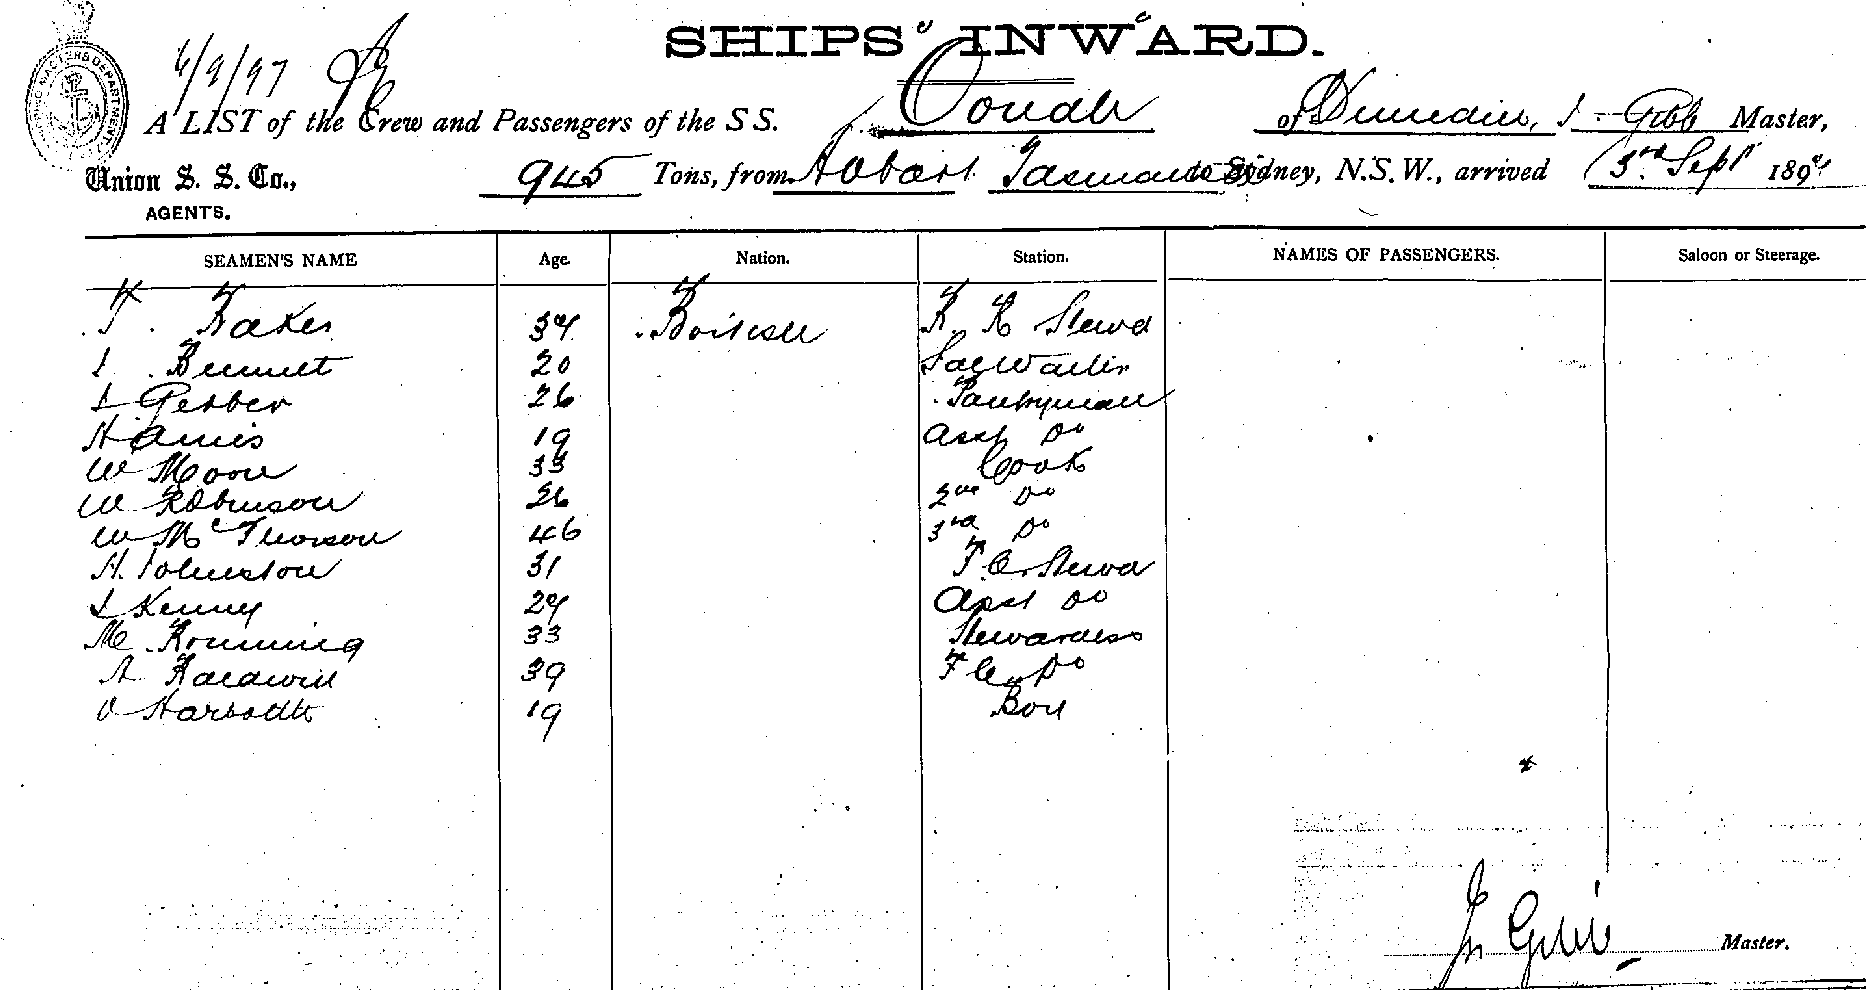 6/9/97
SHIPS' INWARD.
A LIST of the Crew and Passengers of the S S. Oonah of Dunedin, J. Gibb Master,
Union S. S. Co., 945 Tons, from Hobart Tasmania to Sydney, N.S.W., arrived 3rd Sept 1897
AGENTS.
SEAMEN'S NAME Age. Nation. Station. NAMES OF PASSENGERS. Saloon or Steerage.
T. Baker 34 British B. R Stewd
J. Bennett 20 Sal Waiter
J Gerber 26 Pantryman
H Amis 19 Asst Do
W Moore 33 Cook
W Robinson 26 2nd Do
W McThomson 46 3rd Do
H. Johnston 31 F. C. Stewd
J Kenny 24 Asst Do
M 33 Stewardess
A 39 F C. Do
19 Boy
Jn Gibb Master.